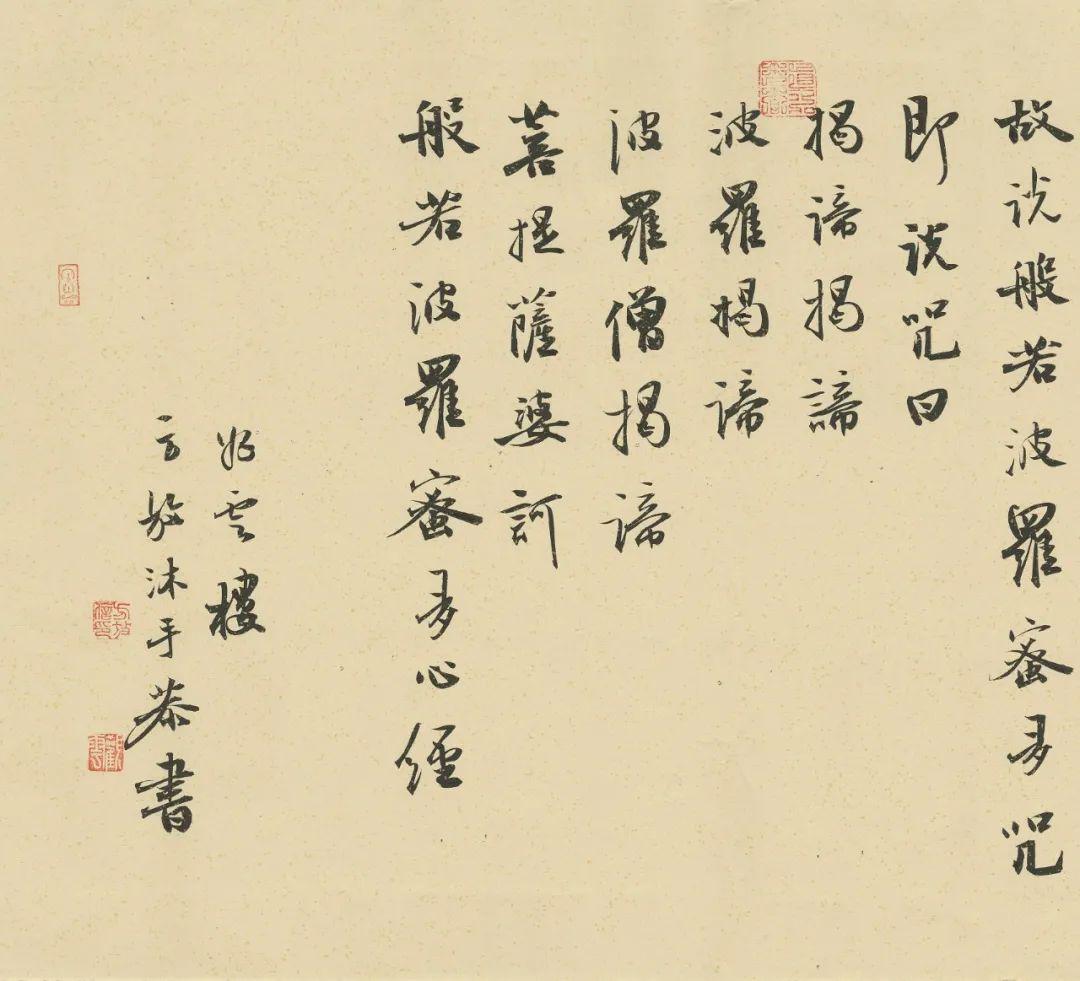 故説般若波羅蜜多咒
即説咒曰
揭諦揭諦
波羅揭諦
波羅僧揭諦
菩提薩婆訶
般若波羅蜜多心經
雲樓
沐手恭書